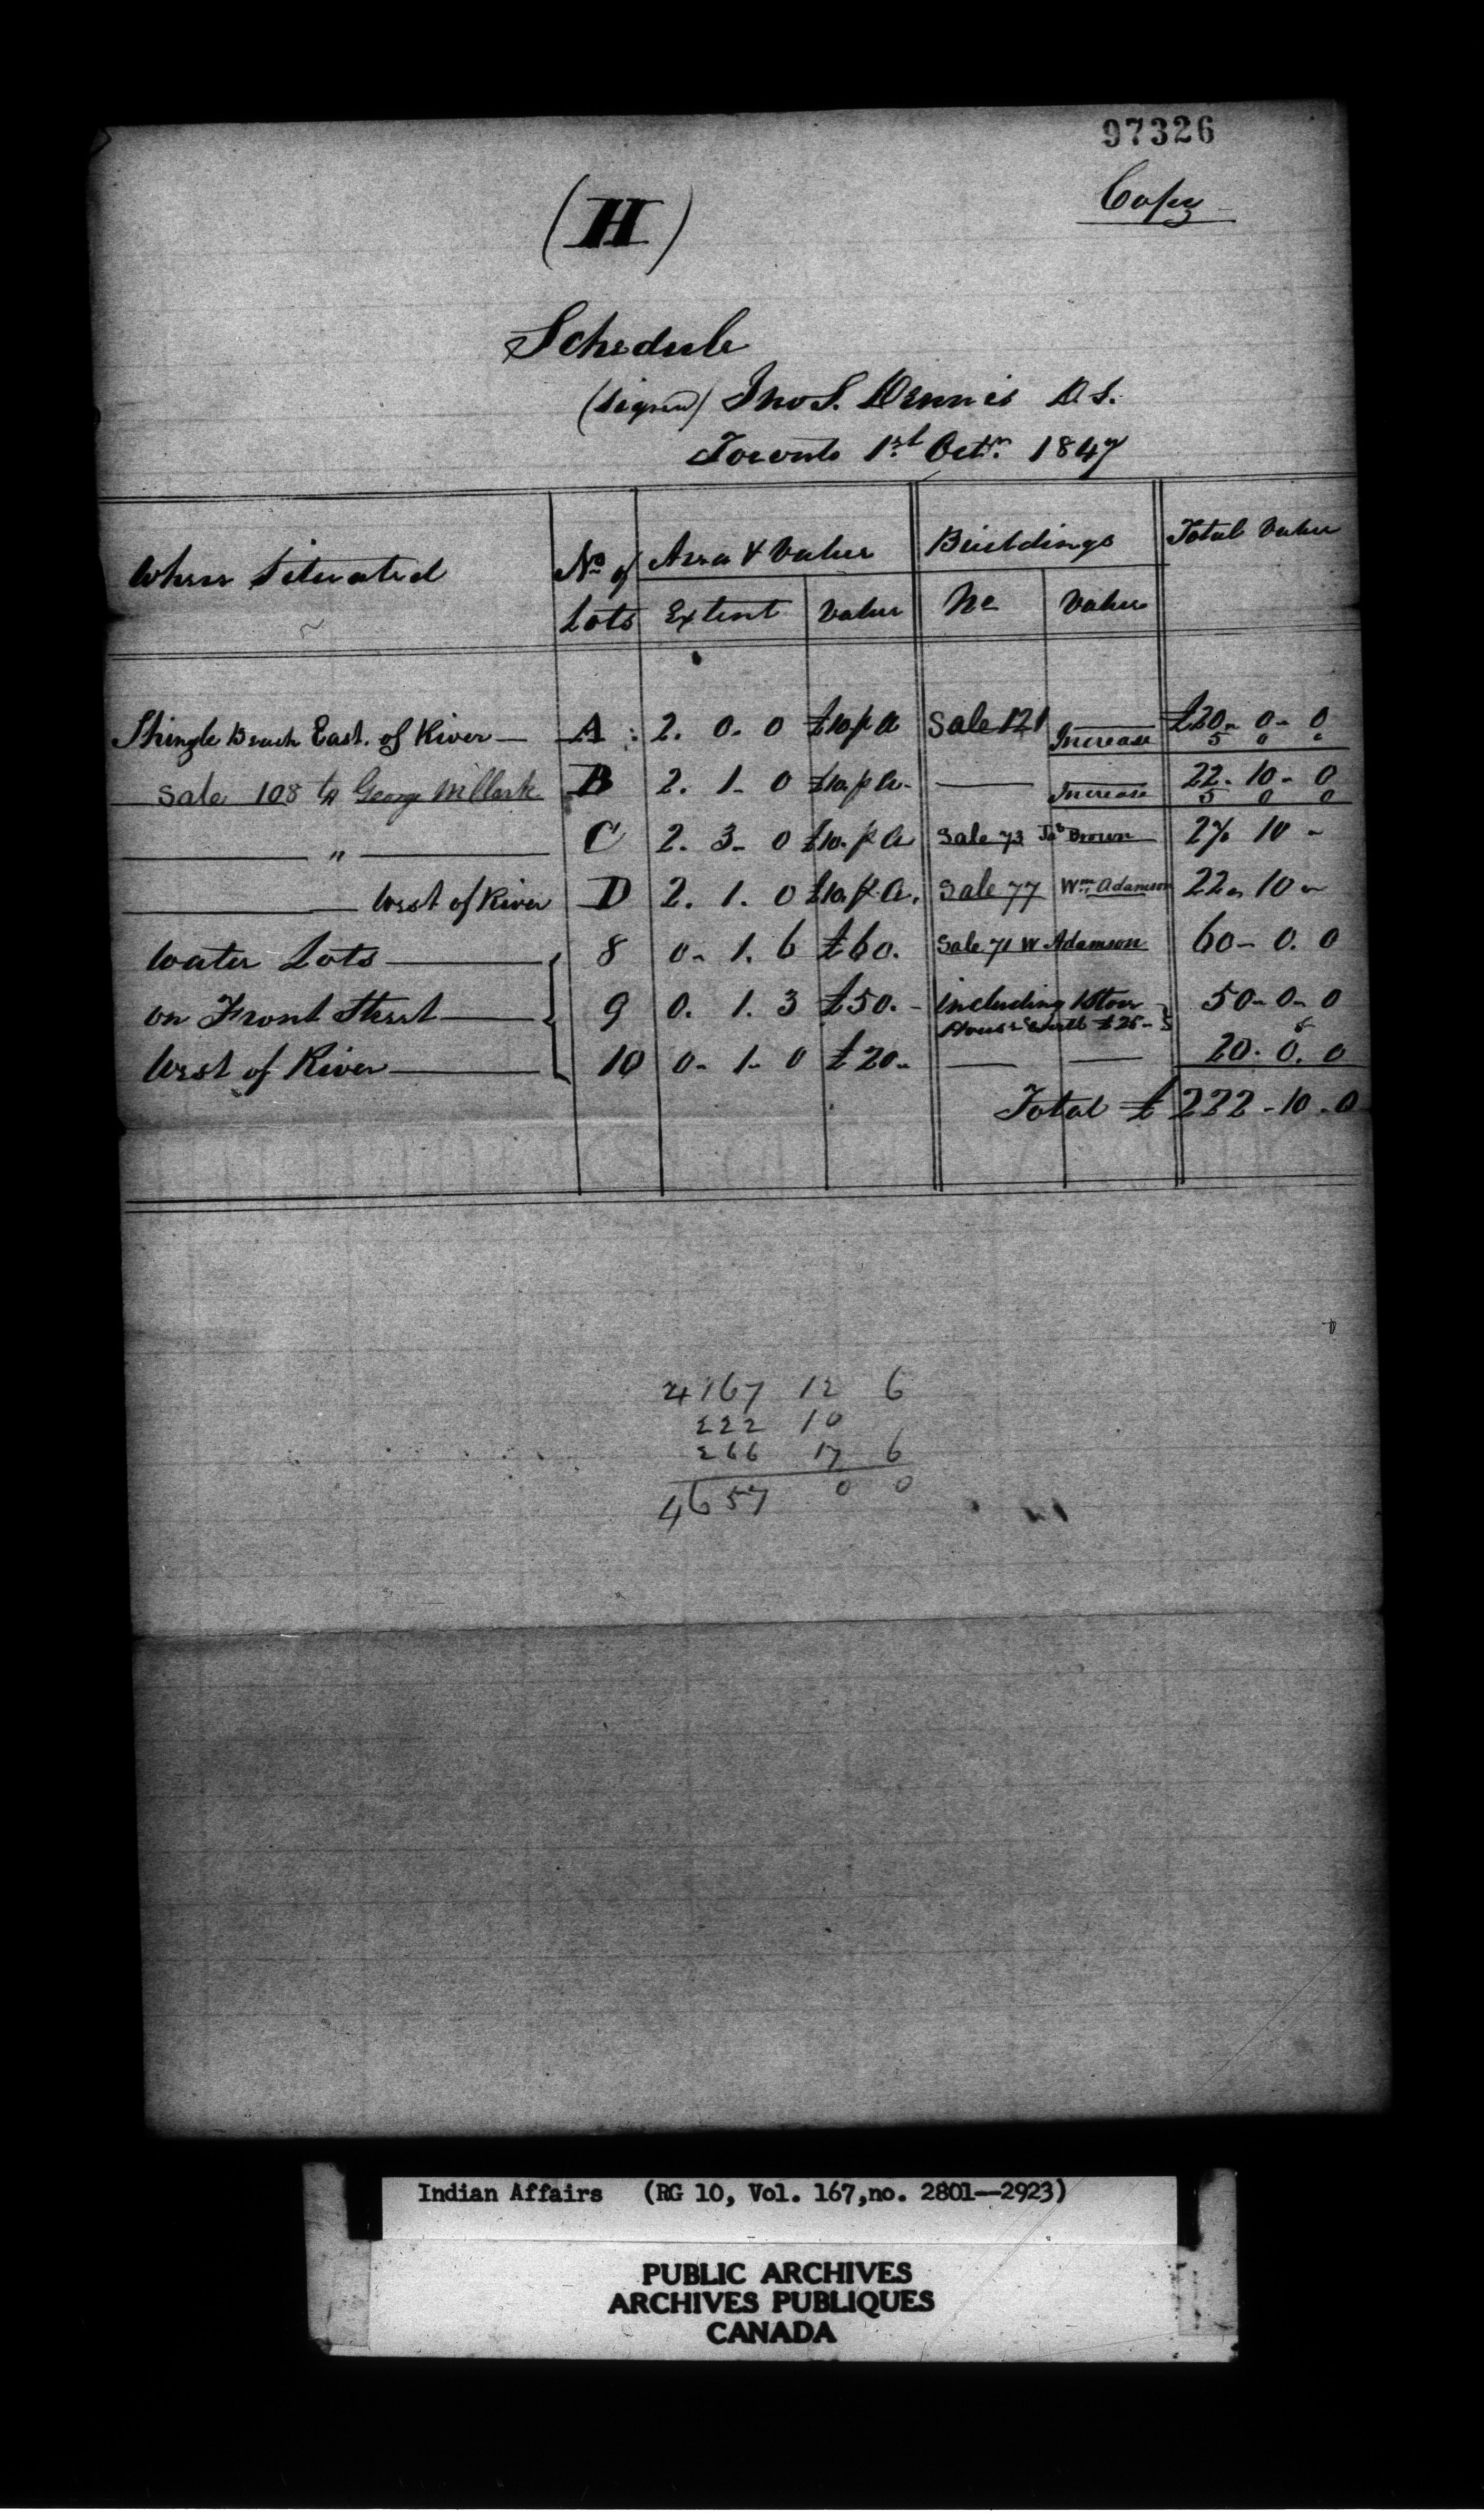 97326
Copy
(H)
Schedule
(signed) Jno S. Dennis D. S.
Toronto 1st Octr. 1847
Where Situated | No of Lots | Area & Value | Buildings | Total Value
Extent | Value | No | Value
Shingle Beach East. of River — | A : | 2. 0. 0 | £10 p A | Sale 121 | | £20 - 0 - 0
Increase | 5 0 0
Sale 108 to George McClark | B | 2. 1. 0 | £10. p A. | — | | 22 - 10 - 0
Increase | 5 0 0
— " — | C | 2. 3 - 0 | £10. p A | Sale 73 Jas Brown | 27 10 -
— West of River | D | 2. 1. 0 | £10. p. A. | Sale 77 | Wm Adamson | 22 " 10 "
Water Lots — | 8 | 0 - 1. 6 | £60. | Sale 71 W Adamson | 60 - 0. 0
on Front Street — | 9 | 0. 1. 3 | £50. - | including 1 Store House worth £25 - | 50 - 0 - 0
West of River — | 10 | 0 - 1 - 0 | £20 - | — | — | 20. 0. 0
Total £ 222 - 10 - 0
4167 12 6
222 10
266 17 6
4657 0 0
Indian Affairs (RG 10, Vol. 167, no. 2801--2923)
PUBLIC ARCHIVES
ARCHIVES PUBLIQUES
CANADA